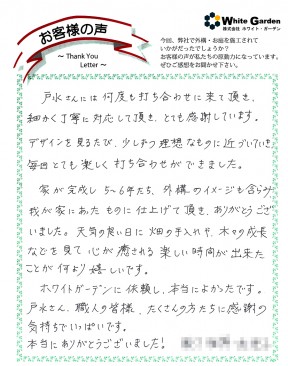 お客様の声
～ Thank You
Letter ～
White Garden
株式会社 ホワイト・ガーデン
今回、弊社で外構・お庭を施工されて
いかがだったでしょうか？
お客様の声が私たちの原動力になっています。
ぜひご感想をお聞かせ下さい。
戸永さんには何度も打ち合わせに来て頂き、
細かく丁寧に対応して頂き、とても感謝しています。
デザインを見るたび、少しずつ理想なものに近づいていき、
毎回とても楽しく打ち合わせができました。
家が完成し5～6年たち、外構のイメージも含らみ
我が家にあたものに仕上げて頂き、ありがとうござ
いました。天気の良い日に畑の手入れや、木々の成長
などを見て心が癒される楽しい時間が出来た
ことが何より嬉しいです。
ホワイトガーデンに依頼し、本当によかったです。
戸永さん、職人の皆様、たくさんの方たちに感謝の
気持ちでいっぱいです。
本当にありがとうございました！